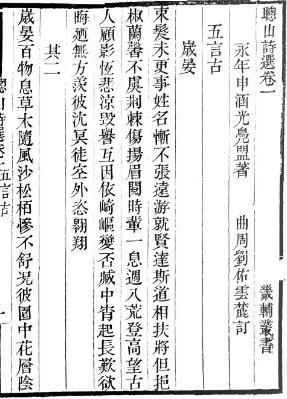 聰山詩選卷一
畿輔叢書
永年申涵光鳧盟著　曲周劉佑雲麓訂
五言古
歲晏
束髮未更事姓名慚不張遠游就賢達斯道相扶將但挹
椒蘭馨不虞荆棘傷揚眉閱時輩一息週八荒登高望古
人顧影恆悲涼毀譽互因依崎嶇變否臧中宵起長歎欲
晦迺無方羨彼沈冥徒塞外恣翱翔
其二
歲晏百物息草木隨風沙松栢慘不舒况彼園中花層陰
聰山詩選卷一五言古
一